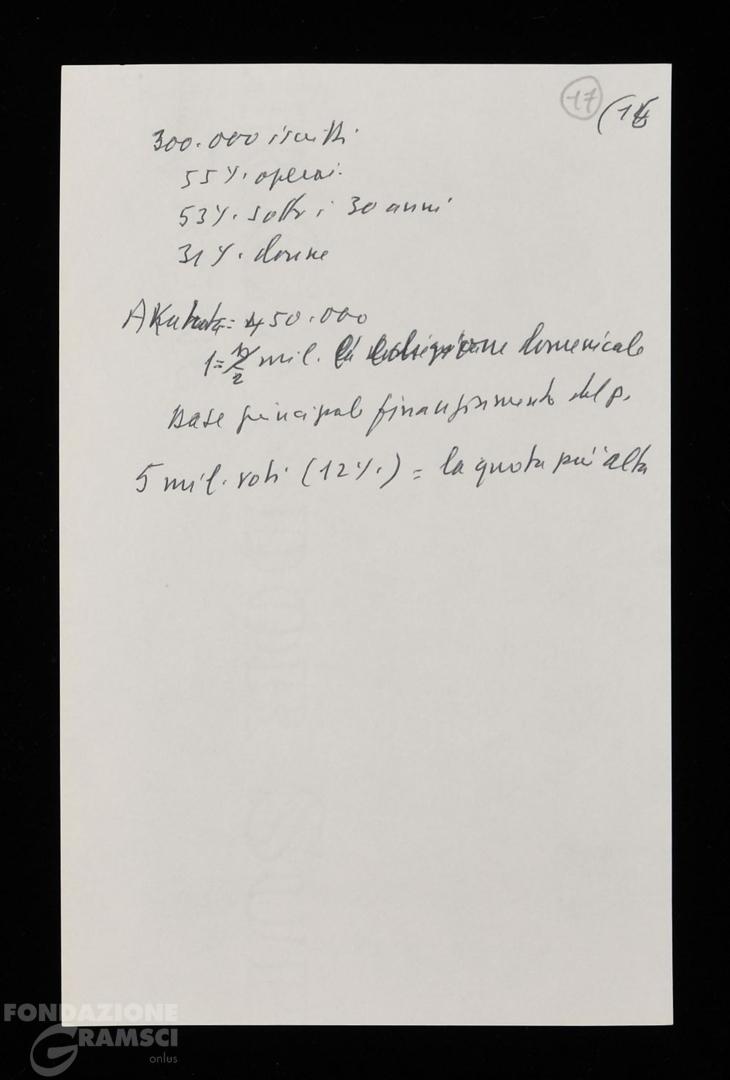 17
(16
300.000 iscritti
55%. operai.
53%. sotto i 30 anni
31%. donne
Akahata = 450.000
1 = 2 mil. edizione domenicale
Base principale finanziamento del p.
5 mil. voti (12%.) = la quota più alta
FONDAZIONE
GRAMSCI
onlus